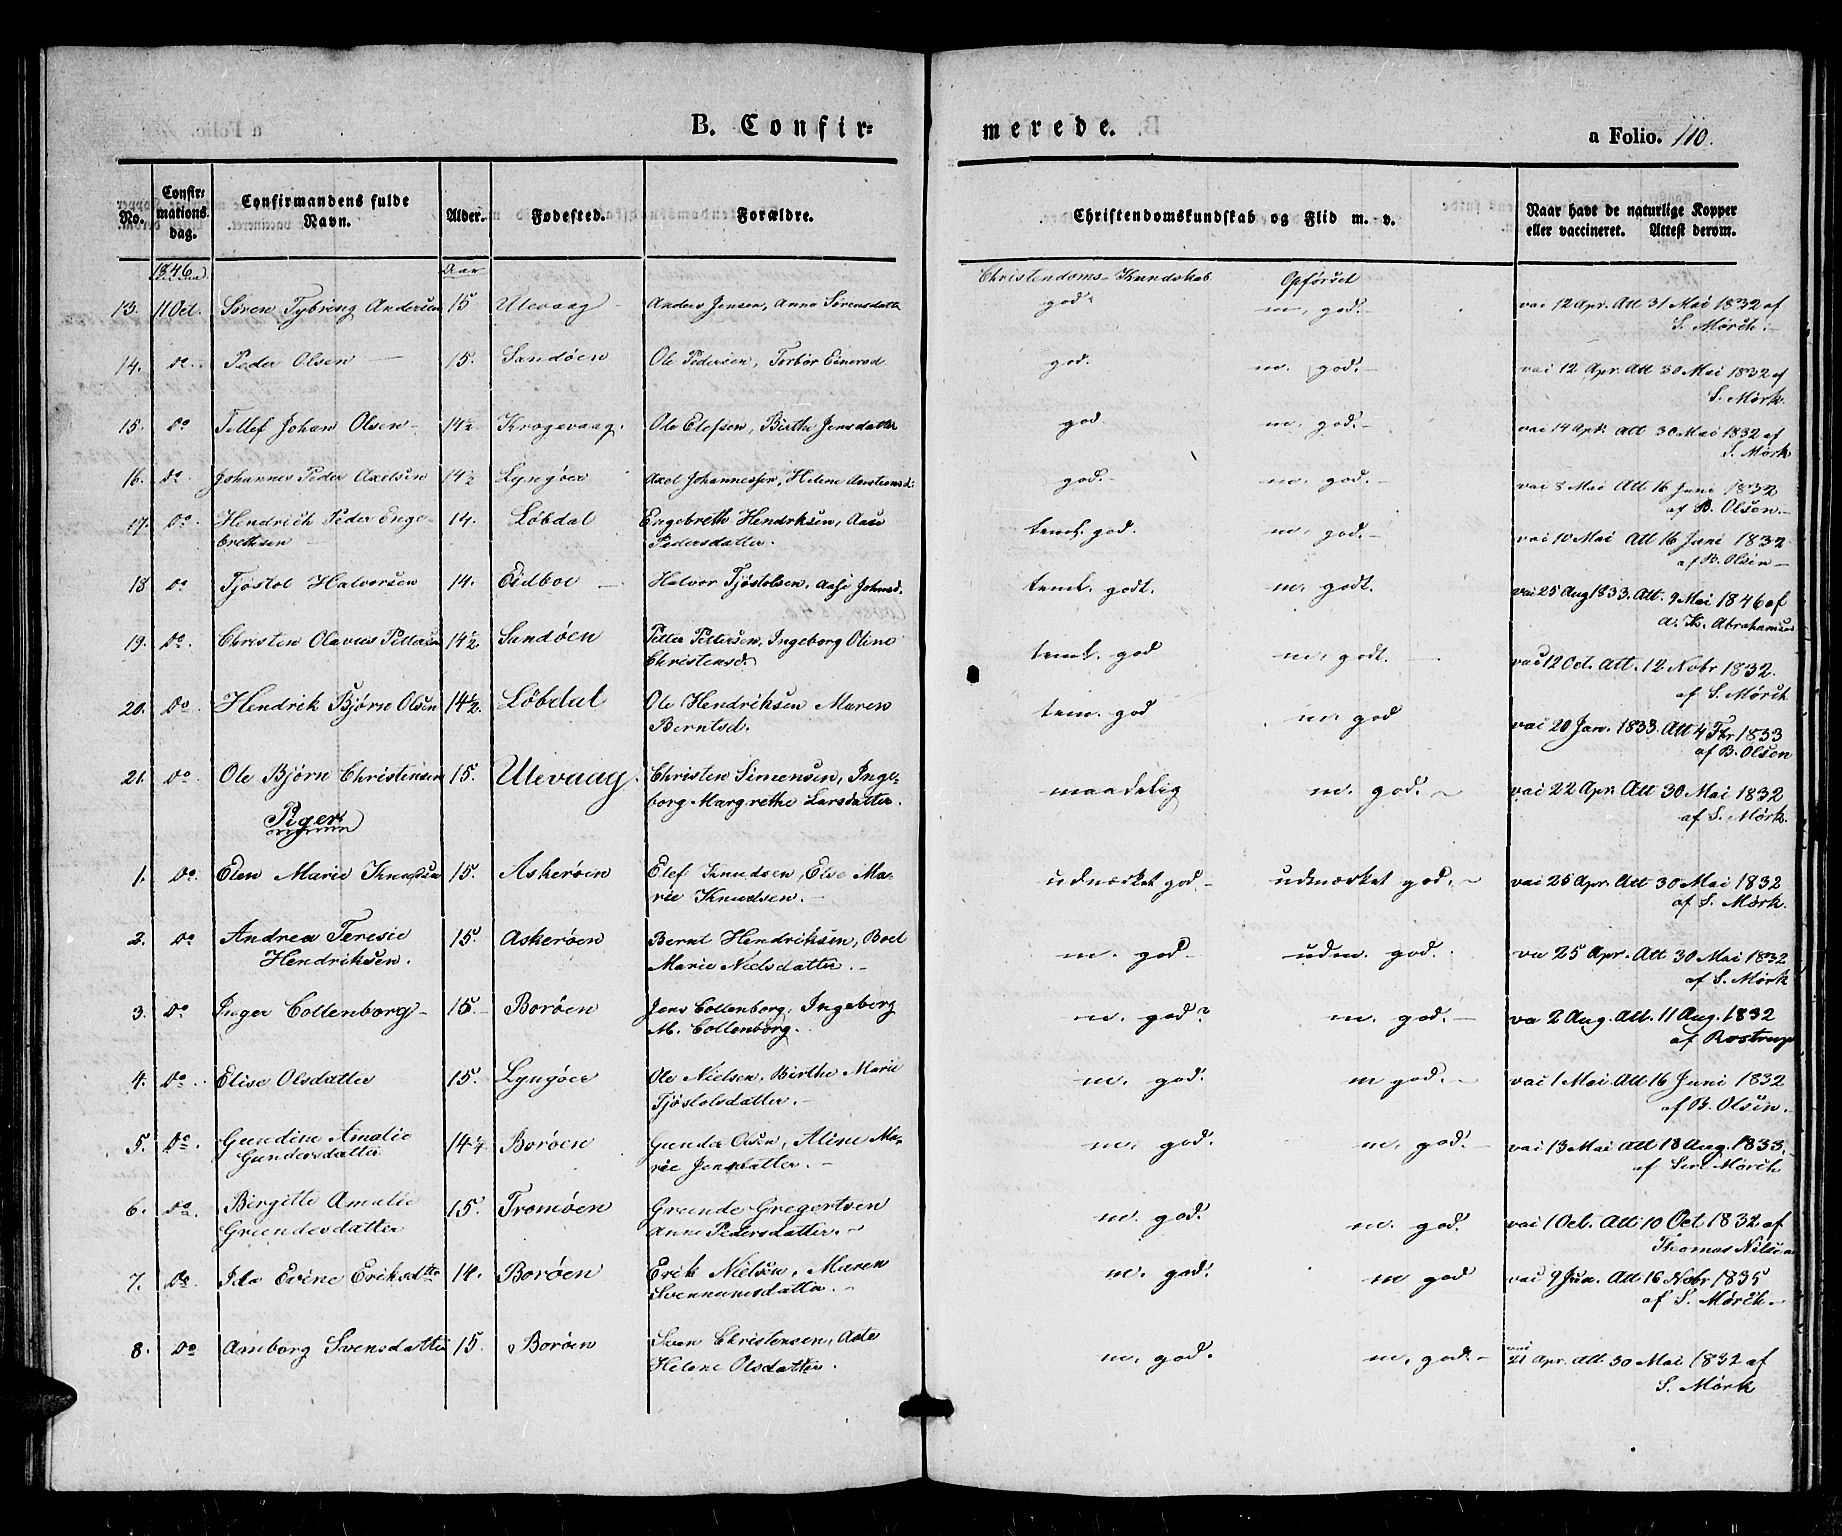 B. Confir=
merede.
a Folio. 110.
No.
Confir=
mations
dag.
Confirmandens fulde
Navn.
Alder.
Fødested.
Forældre.
Christendomskundskab og Flid m. v.
Naar havt de naturlige Kopper
eller vaccineret. Attest derom.
1846
Aar
Christendoms-Kundskab
Opførsel
13. 11 Oct. Søren Tybring Andersen 15 Ulevaag Anders Jensen, Anna Sørensdatter god m. god. vai 12 Apr. Att 31 Mai 1832 af
S. Mørch.
14. do Peder Olsen 15. Sandøen Ole Pedersen, Torbør Einersd god. m. god. vai 12 Apr. Att 30 Mai 1832 af
S. Mørk.
15. do Tellef Johan Olsen 14½ Krogevaag. Ole Elefsen, Birthe Jensdatter god m. god. vai 14 Apr. Att 30 Mai 1832 af
S. Mørk
16. do Johannes Peder Axelsen 14½ Lyngøer Axel Johannessen, Helene god. m. god. vai 8 Mai Att 16 Juni 1832
af B. Olsen.
17. do Hendrich Peder Enge- 14. Løbdal Engebreth Hendriksen, Aase teml. god. m. god. vai 10 Mai Att 16 Juni 1832
brethsen Pedersdatter. af B. Olsen
18 do Tjøstol Halvorsen 14. Eidboe Halvor Tjøstolsen, Aase Johnsd. teml. godt. m. godt. vai 25 Aug 1833. Att. 9 Mai 1846 af
A. K. Abrahamsen
19. do Christen Olavus Pettersen 14½ Sandøen Petter Pettersen, Ingeborg Oline teml. god m. godt. vai 12 Oct. Att. 12 Nobr 1832.
Christensd. af S. Mørch
20. do Hendrik Bjørn Olsen 14½. Løbdal Ole Hendriksen Maren tem. god m. god vai 20 Jan. 1833. Att 4 Fbr 1833
Berntsd. af B. Olsen
21. do Ole Bjørn Christensen 15. Ulevaag. Christen Simensen, Inge- maadelig m. god. vai 22 Apr. Att 30 Mai 1832
borg Margrethe Larsdatter. af S. Mørk.
Piger
1. do. Elen Marie Knudsen 15. Askerøen Elef Knudsen, Else Ma- udmærket god udmærket god. vai 25 Apr. Att 30 Mai 1832
rie Knudsen. af S. Mørk.
2. do Andrea Teresie 15. Askerøen Bernt Hendriksen, Boel m. god udm. god. va 25 Apr. Att 30 Mai 1832
Hendriksen. Marie Nielsdatter. af S. Mørk
3. do Inger Collenborg 15. Borøen Jens Collenborg, Ingeborg m. god? m. god. va 2 Aug. Att. 11 Aug. 1832
M. Collenborg. af Rostrup
4. do Elise Olsdatter 15. Lyngøer Ole Nielsen, Birthe Marie m. god. m god. vai 1 Mai Att 16 Juni 1832
Tjøstolsdatter. af B. Olsen.
5. do. Gundine Amalie Borøen Gunder Olsen, Aline Ma- m. god. m. god. vai 13 Mai Att 18 Aug. 1833.
Gundersdatter rie Jensdatter. af Mørch
6. do. Birgitte Amalie 15. Tromøen Grunde Gregertsen m. god. m. god. vai 1 Oct. Att 10 Oct 1832. af
Grundesdatter Anne Pedersdatter. Thomas Nilsen
7. do. Ida Evine Eriksdtter 14. Borøen Erik Nielsen, Maren m. god. m god vai 9 Jun. Att 16 Nobr 1835
Svennumsdatter. af S. Mørch.
8. do Anborg Svensdatter 15. Borøen Sven Christensen, Aste m. god. m. god. vai 21 Apr. Att 30 Mai 1832 af
Helene Olsdatter. S. Mørk